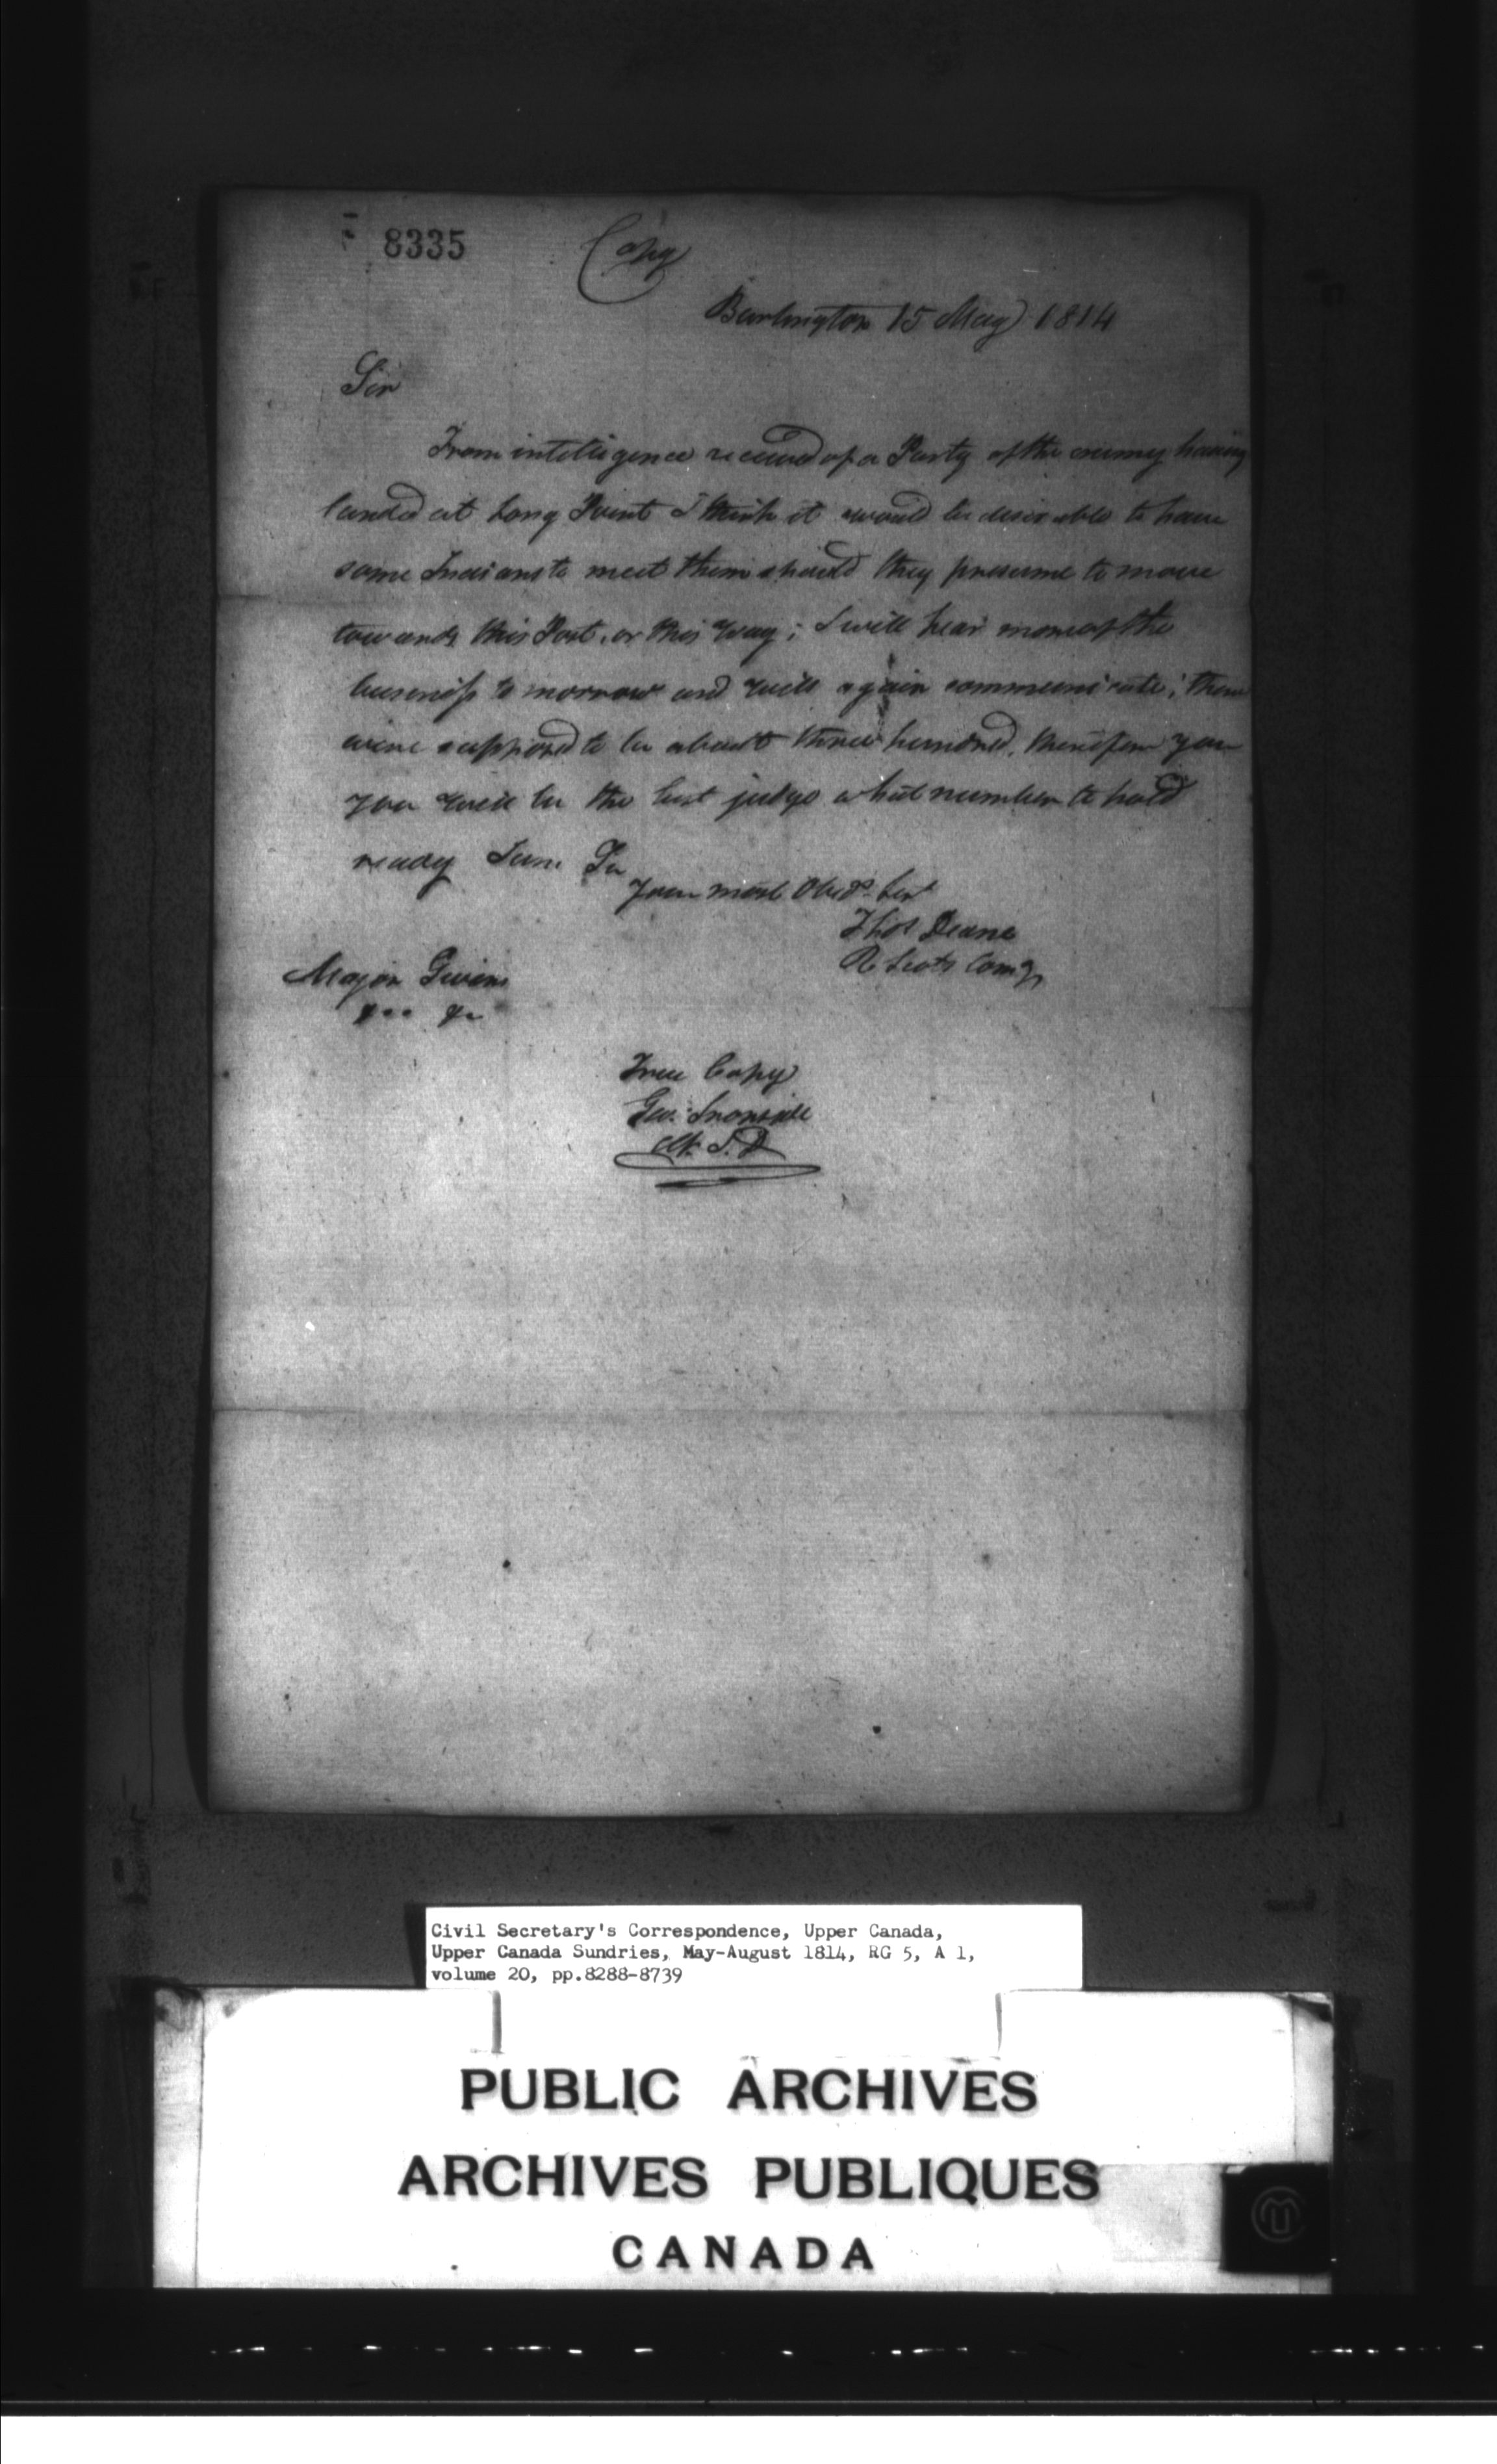 8335
Copy
Burlington 15 May 1814
Sir
From intelligence received of a Party of the enemy having
landed at Long Point I think it would be desirable to have
some Indians to meet them should they presume to move
towards this Post, or this Way; I will hear more of the
business to morrow and will again communicate; there
were supposed to be about three hundred, therefore you
you will be the best judge what number to hold
ready I am Sir
Your most Obedt. Sert
Thos Deane
R Scots Comg
Major Givins
&cc &c
True Copy
Geo. Ironside
Clk I. D
Civil Secretary's Correspondence, Upper Canada,
Upper Canada Sundries, May-August 1814, RG 5, A 1,
volume 20, pp.8288-8739
PUBLIC ARCHIVES
ARCHIVES PUBLIQUES
CANADA